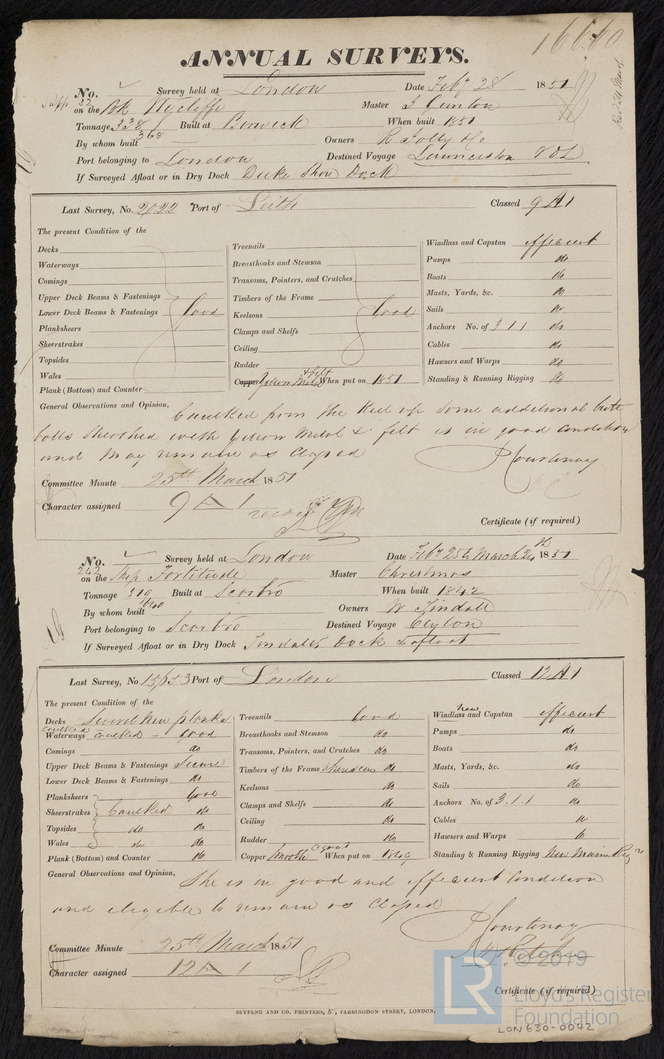 16660
ANNUAL SURVEYS.
No. Survey held at London Date Feby 28 1851
22 on the Bk Wycliffe Master J Clinton
Tonnage 338 Built at Berwick When built 1851
368
By whom built Owners R Jolly &c
Port belonging to London Destined Voyage Launceston VDL
If Surveyed Afloat or in Dry Dock Duke Shore Dock
Last Survey, No. 2022 Port of Leith Classed 9 A 1
The present Condition of the
Decks Treenails Windlass and Capstan efficient
Waterways Breasthooks and Stemson Pumps do
Comings Transoms, Pointers, and Crutches Boats do
Upper Deck Beams & Fastenings Timbers of the Frame Masts, Yards, &c. do
Lower Deck Beams & Fastenings Good Keelsons Good Sails do
Planksheers Clamps and Shelfs Anchors No. of 3 1 1 do
Sheerstrakes Ceiling Cables do
Topsides Rudder Hawsers and Warps do
Wales Copper Yellow Metal & felt When put on 1851 Standing & Running Rigging do
Plank (Bottom) and Counter
General Observations and Opinion, Caulked from the Keel up some additional butt
bolts sheathed with Yellow Metal & felt is in good condition
and may remain as Classed
Courtenay
Committee Minute 25th March 1851
Character assigned 9 A 1
Certificate (if required)
No. Survey held at London Date Feby 25th March 24 1851
242 on the Ship Fortitude Master Christmas
Tonnage 310 Built at Scarbro When built 1842
By whom built Owners W Tindall
Port belonging to Scarbro Destined Voyage Ceylon
If Surveyed Afloat or in Dry Dock Tindalls Dock & afloat
Last Survey, No. 15653 Port of London Classed 12 A 1
The present Condition of the
Decks Several New planks Treenails Good New Windlass and Capstan efficient
caulked
Waterways caulked - Good Breasthooks and Stemson do Pumps do
Comings do Transoms, Pointers, and Crutches do Boats do
Upper Deck Beams & Fastenings Secure Timbers of the Frame do Masts, Yards, &c. do
Lower Deck Beams & Fastenings do Keelsons do Sails do
Planksheers Good Clamps and Shelfs do Anchors No. of 3.1.1 do
Sheerstrakes Caulked do Ceiling do Cables do
Topsides do do Rudder do Hawsers and Warps do
Wales do do Copper good When put on 1849 Standing & Running Rigging New Main Rigg
Plank (Bottom) and Counter do
General Observations and Opinion, She is in good and efficient Condition
and eligible to remain as Classed
Courtenay
Committee Minute 25th March 1851
Character assigned 12 A 1
Certificate (if required)
SEYFANG AND CO. PRINTERS, 57, FARRINGDON STREET, LONDON.
LR © 2019
Lloyd's Register
Foundation
LON630-0042